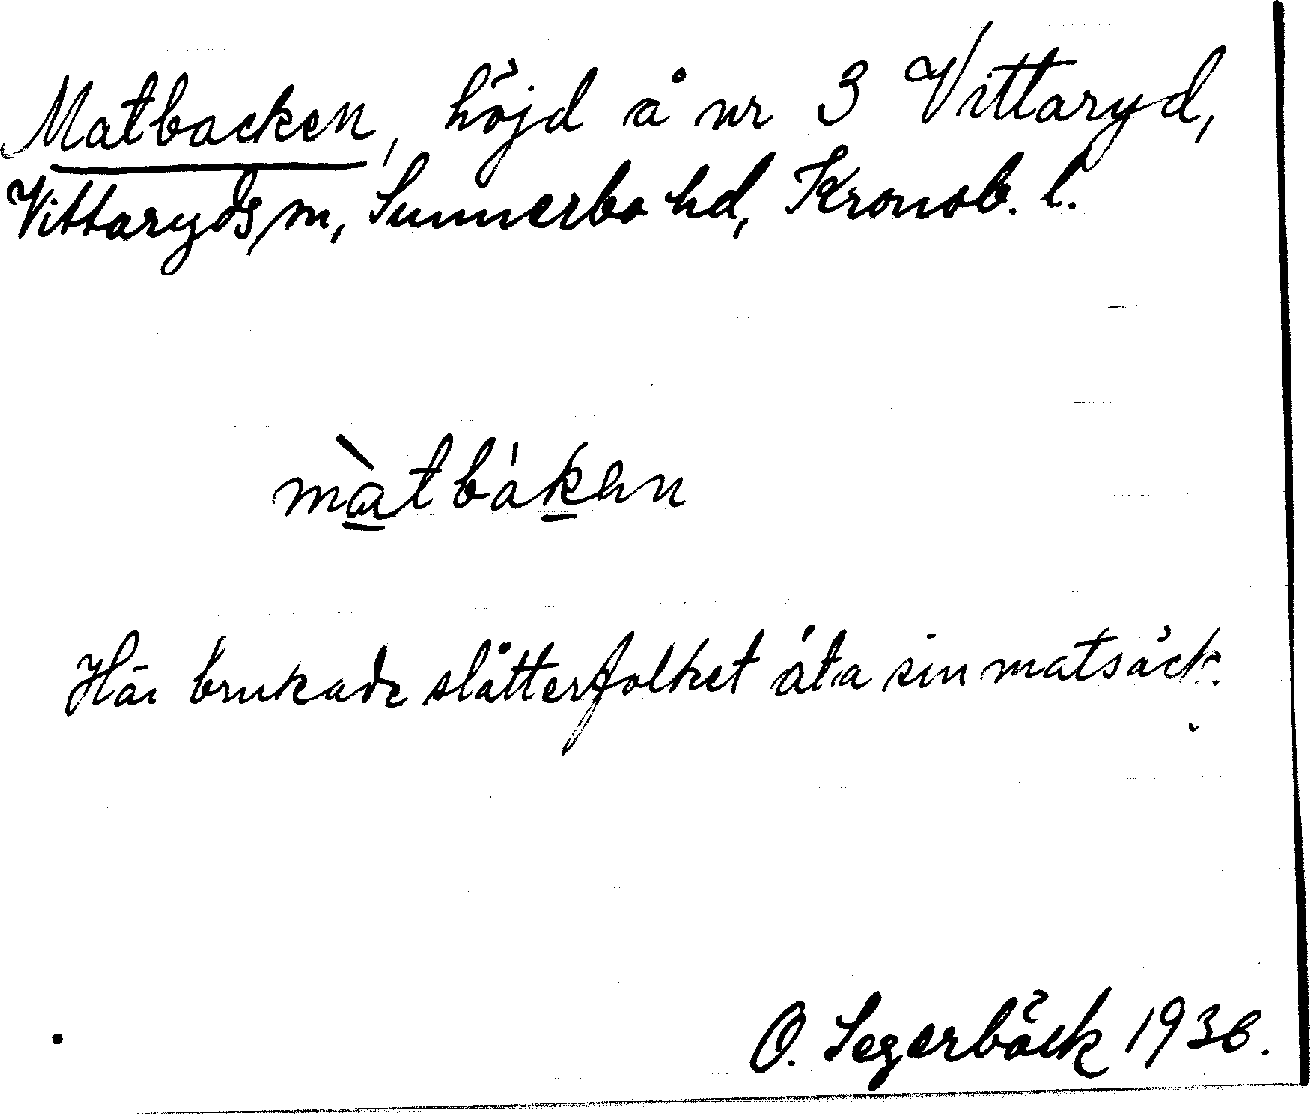 Matbacken, höjd å nr 3 Vittaryd,
Vittaryds sn, Sunnerbo hd, Kronob. l.
màtbákan
Här brukade slåtterfolket äta sin matsäck.
O. Segerbäck 1936.